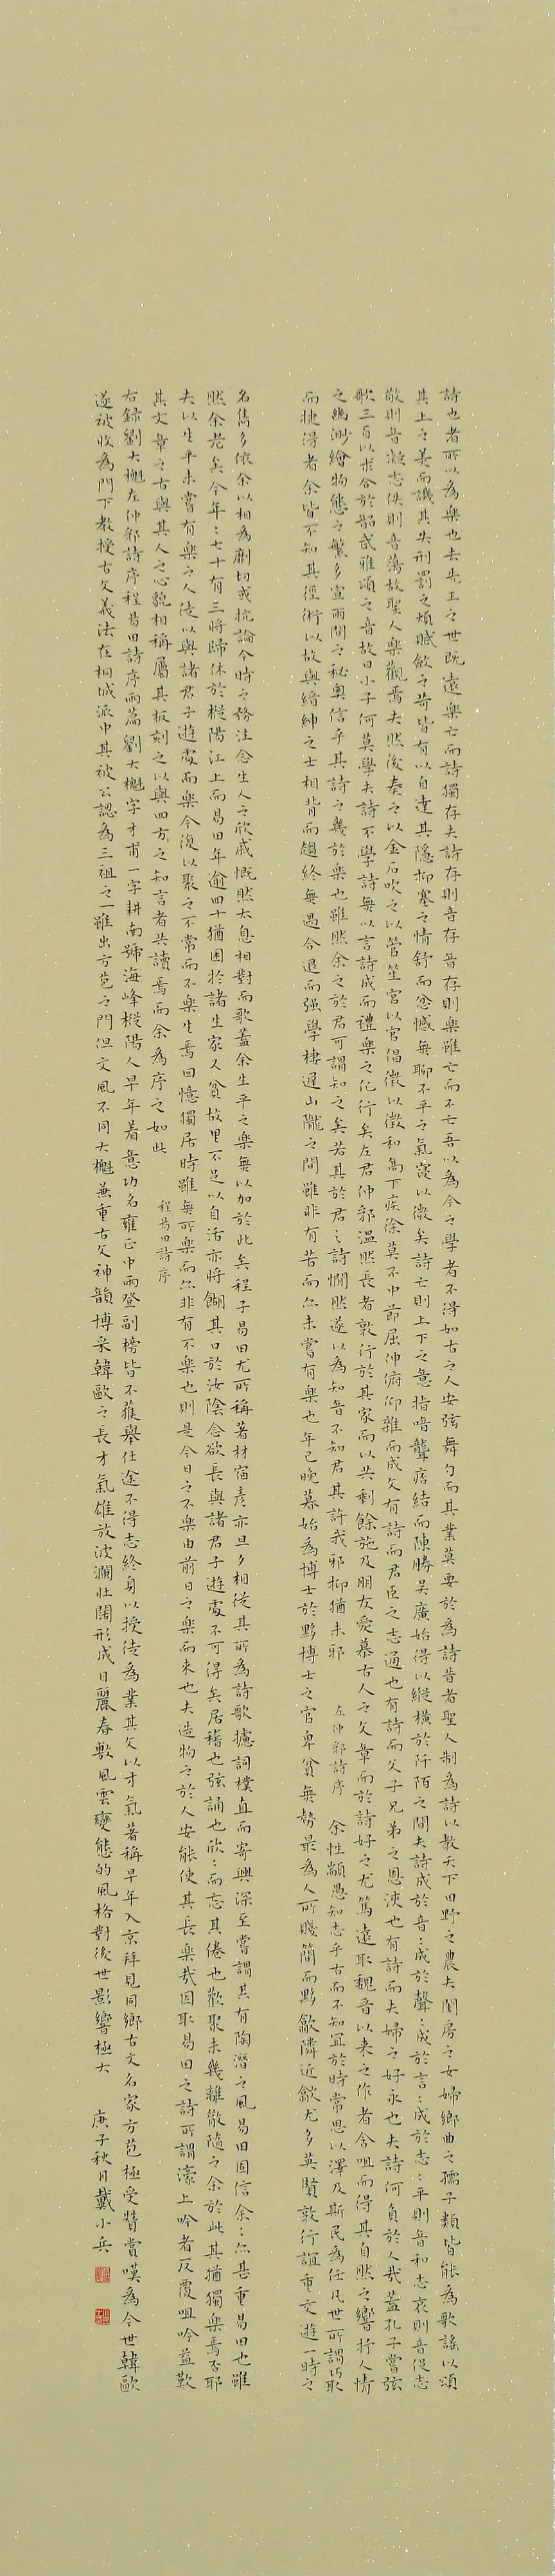 詩也者所以為樂也去先王之世既遠樂亡而詩獨存夫詩存則音存音存則樂雖亡而不亡吾以為今之學者不得如古之人安弦舞勺而其業莫要於為詩昔者聖人制為詩以教天下田野之農夫閨房之女婦鄉曲之孺子類皆能為歌謠以頌
其上之美而譏其失刑罰之煩賦斂之苛皆有以自達其隱抑塞之情舒而忿憾無聊不平之氣寖以微矣詩亡則上下之意指喑聾痞結而陳勝吳廣始得以縱橫於阡陌之間夫詩成於音:成於聲:成於言:成於志:平則音和志哀則音促志
敬則音凝志佚則音蕩故聖人樂觀焉夫然後奏之以金石吹之以管笙宮以宮倡徵以徵和高下疾徐莫不中節屈伸俯仰雜而成文有詩而君臣之志通也有詩而父子兄弟之恩浹也有詩而夫婦之好永也夫詩何負於人哉蓋孔子嘗弦
歌三百以求合於韶武雅頌之音故曰小子何莫學夫詩不學詩無以言詩成而禮樂之化行矣左君仲郛溫然長者敦行於其家而以其剩餘施及朋友愛慕古人之文章而於詩好之尤篤遠取魏晉以來之作者含咀而得其自然之響抒人情
之幽渺繪物態之繁多宣兩間之秘奧信乎其詩之幾於樂也雖然余之於君可謂知之矣若其於君之詩惘然遂以為知音不知君其許我邪抑猶未邪 左仲郛詩序 余性顓愚知志乎古而不知宜於時常思以澤及斯民為任凡世所謂巧取
而捷得者余皆不知其徑術以故與縉紳之士相背而趨終無遇合退而强學棲遲山隴之間雖非有苦而尒未嘗有樂也年已晚暮始為博士於黟博士之官卑貧無勢最為人所賤簡而黟歙隣近歙尤多英賢敦行誼重文遊一時之
名雋多依余以相為劘切或抗論今時之務注念生人之欣戚慨然太息相對而歌蓋余生平之樂無以加於此矣程子易田尤所稱著材宿彥亦旦夕相從其所為詩歌攄詞樸直而寄興深至嘗謂其有陶潛之風易田固信余:尒甚重易田也雖
然余老矣今年:七十有三將歸休於樅陽江上而易田年逾四十猶困於諸生家又貧故里不足以自活亦將餬其口於汝陰念欲長與諸君子遊處不可得矣居稽也弦誦也欣:而忘其倦也歡聚未幾離散隨之余於此其猶獨樂焉否耶
夫以生平未嘗有樂之人徒以與諸君子遊處而樂今復以聚之不常而不樂生焉回憶獨居時雖無所樂而尒非有不樂也則是今日之不樂由前日之樂而來也夫造物之於人安能使其長樂哉因取易田之詩所謂濠上吟者反覆咀吟益歎
其文章之古與其人之心貌相稱屬其板刻之以與四方之知言者共讀焉而余為序之如此 程易田詩序
右錄劉大櫆左仲郛詩序程易田詩序兩篇劉大櫆字才甫一字耕南號海峰樅陽人早年着意功名雍正中兩登副榜皆不獲舉仕途不得志終身以授徒為業其文以才氣著稱早年入京拜見同鄉古文名家方苞極受贊賞嘆為今世韓歐
遂被收為門下教授古文義法在桐城派中其被公認為三祖之一雖出方苞之門但文風不同大櫆兼重古文神韻博采韓歐之長才氣雄放波瀾壯闊形成日麗春敷風雲變態的風格對後世影響極大 庚子秋月戴小兵